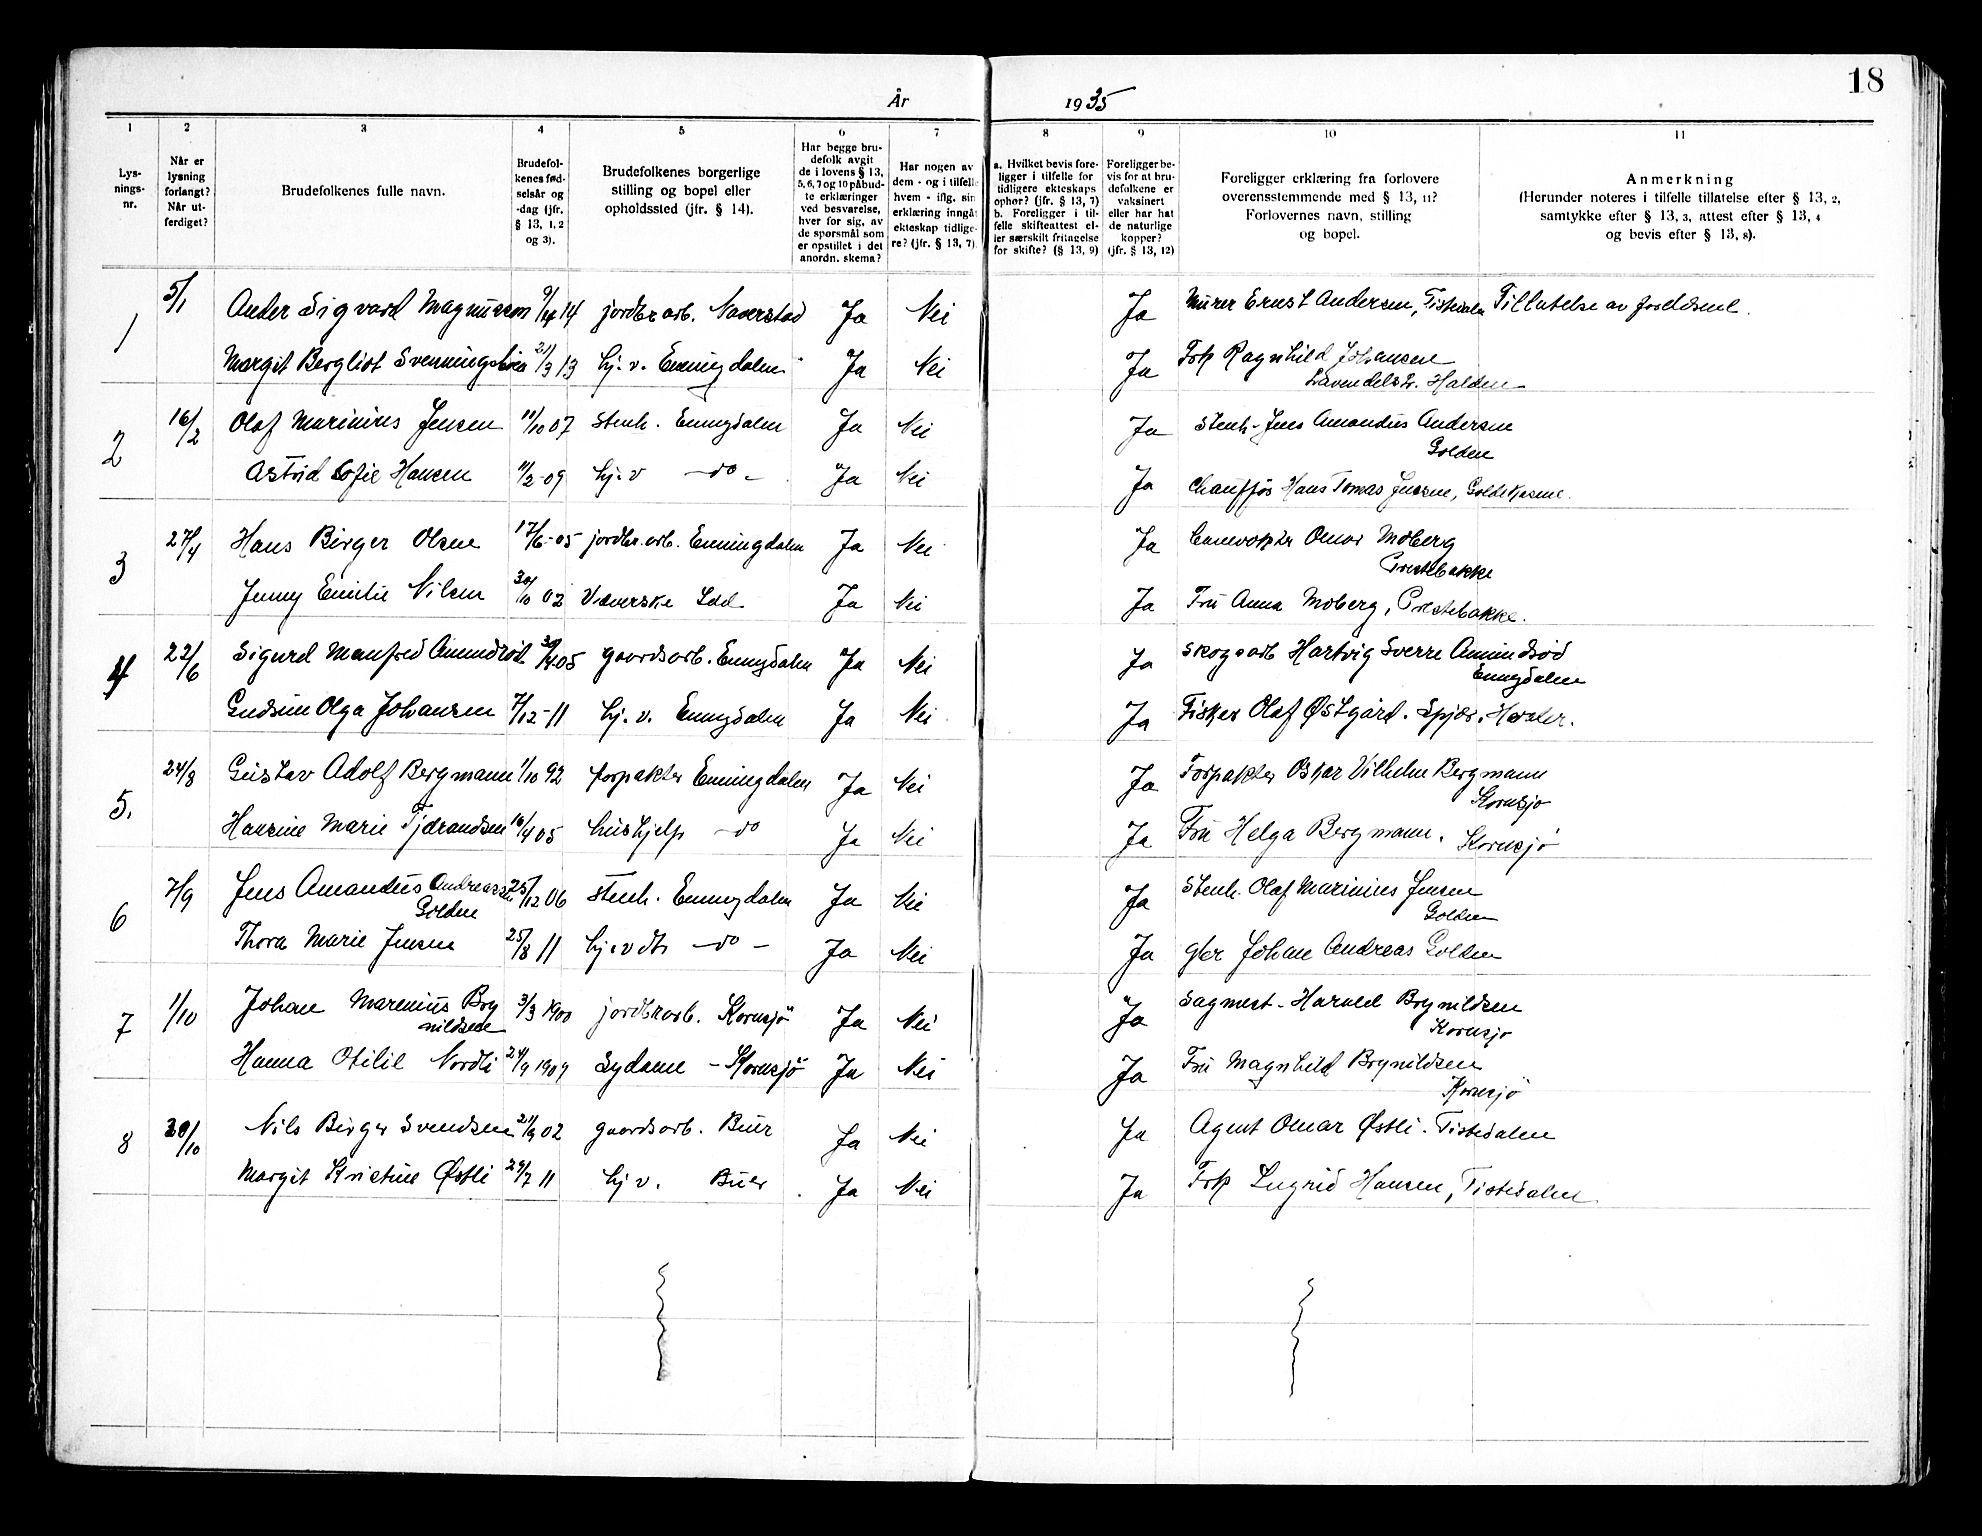 18
År 1935
1 2 3 4 5 6 7 8 9 10 11
Lysningsnr.
Når er lysning forlangt? Når utferdiget?
Brudefolkenes fulle navn.
Brudefolkenes fødselsår og -dag (jfr. § 13, 1, 2 og 3).
Brudefolkenes borgerlige stilling og bopel eller opholdssted (jfr. § 14).
Har begge brudefolk avgit de i lovens § 13, 5, 6, 7 og 10 påbudte erklæringer ved besvarelse, hver for sig, av de spørsmål som er opstillet i det anordn. skema?
Har nogen av dem - og i tilfelle hvem - iflg. sin erklæring inngått ekteskap tidligere? (jfr. § 13, 7).
a. Hvilket bevis foreligger i tilfelle for tidligere ekteskaps ophør? (jfr. § 13, 7)
b. Foreligger i tilfelle skifteattest eller særskilt fritagelse for skifte? (§ 13, 9)
Foreligger bevis for at brudefolkene er vaksinert eller har hat de naturlige kopper? (jfr. § 13, 12)
Foreligger erklæring fra forlovere overensstemmende med § 13, 11? Forlovernes navn, stilling og bopel.
Anmerkning
(Herunder noteres i tilfelle tillatelse efter § 13, 2, samtykke efter § 13, 3, attest efter § 13, 4 og bevis efter § 13, 8).
1 5/1 Ander Sigvard Magnusson 9/4 14 jordbr arb. Naverstad Ja Nei Ja Murer Ernst Andersen, Tistedalen Tillatelse av
Margit Bergliot 21/3 13 hj. v. Enningdalen Ja Nei Ja Frk Ragnhild Johansen
Halden
2 16/2 Olaf Marinius Jensen 11/10 07 Stenh. Enngdalen Ja Nei Ja Stenh. Jens Amandus Andersen
Golden
Astrid Sofie Hansen 11/2-09 hj. v -do- Ja Nei Ja Chauffør Hans Tomas Jensen,
3 27/4 Hans Birger Olsen 17/6-05 jordbr. arb. Enningdalen Ja Nei Ja Omar Moberg
Prestebakke
Jenny Emilie Nilsen 30/10 02 Væverske Idd Ja Nei Ja Fru Anna Moberg, Prestebakke.
4 22/6 Sigurd Manfred Amundrød 30/4 05 gaardsarb. Enngdalen Ja Nei Ja Skogsarb Hartvig Sverre Amundrød
Enngdalen
Gudrun Olga Johansen 7/12-11 hj. v. Enngdalen Ja Nei Ja Fisker Olaf Østgård. Spjær. Hvaler.
5. 24/8 Gustav Adolf Bergmann 1/10 92 forpakter Enningdalen Ja Nei Ja Forpakter Oskar Vilhelm Bergmann
Kornsjø
Hansine Marie Tjærandsen 16/4 05 hushjelp -do Ja Nei Ja Fru Helga Bergmann. Kornsjø
6 7/9 Jens Amandus Andreassen 25/12 06 stenh. Enngdalen Ja Nei Ja Stenh. Olaf Marinius Jensen
Golden Golden
Thora Marie Jensen 25/8 11 hj. v dtr -do- Ja Nei Ja gbr Johan Andreas Golden
7 1/10 Johan Marenius Bry 3/3 1900 jordbr arb. Kornsjø Ja Nei Ja Sagmest. Harald Brynildsen
nildsen Kornsjø
Hanna Otilie Nordli 24/9 1909 Sydame - Kornsjø Ja Nei Ja Fru Magnhild Brynildsen
Kornsjø
8 30/10 Nils Birger Svendsen 21/9 02 gaardsarb. Buer Ja Nei Ja Agent Omar Østli. Tistedalen
Margit Kristine Østli 29/7 11 hj v. Buer Ja Nei Ja Frk Ingrid Hansen, Tistedalen